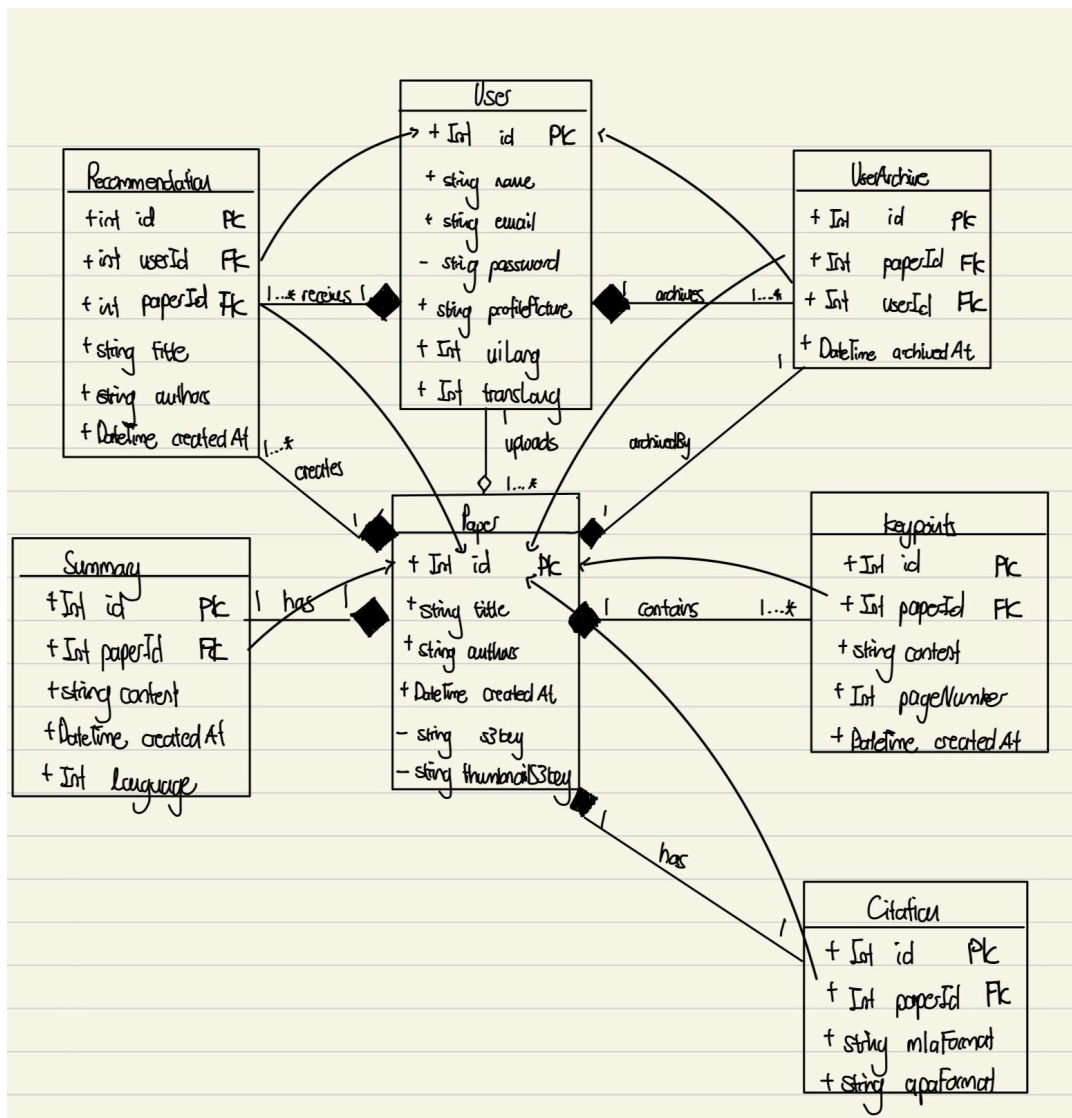 User
+ Int id PK
+ string name
+ string email
- string password
+ string profilePicture
+ Int uiLang
+ Int transLang
Recommendation
+ int id PK
+ int userId FK
+ int paperId FK
+ string title
+ string authors
+ DateTime createdAt
UserArchive
+ Int id PK
+ Int paperId FK
+ Int userId FK
+ DateTime archivedAt
1...* receives 1
1 archives 1...*
1
uploads
1...*
1...*
creates
1
1
archivedBy
1
Paper
+ Int id PK
+ string title
+ string authors
+ DateTime createdAt
- string s3key
- string thumbnailS3key
Summary
+ Int id PK
+ Int paperId FK
+ string content
+ DateTime createdAt
+ Int language
1 has 1
1 contains 1...*
keypoints
+ Int id PK
+ Int paperId FK
+ string content
+ Int pageNumber
+ DateTime createdAt
1
has
1
Citation
+ Int id PK
+ Int paperId FK
+ string mlaFormat
+ string apaFormat